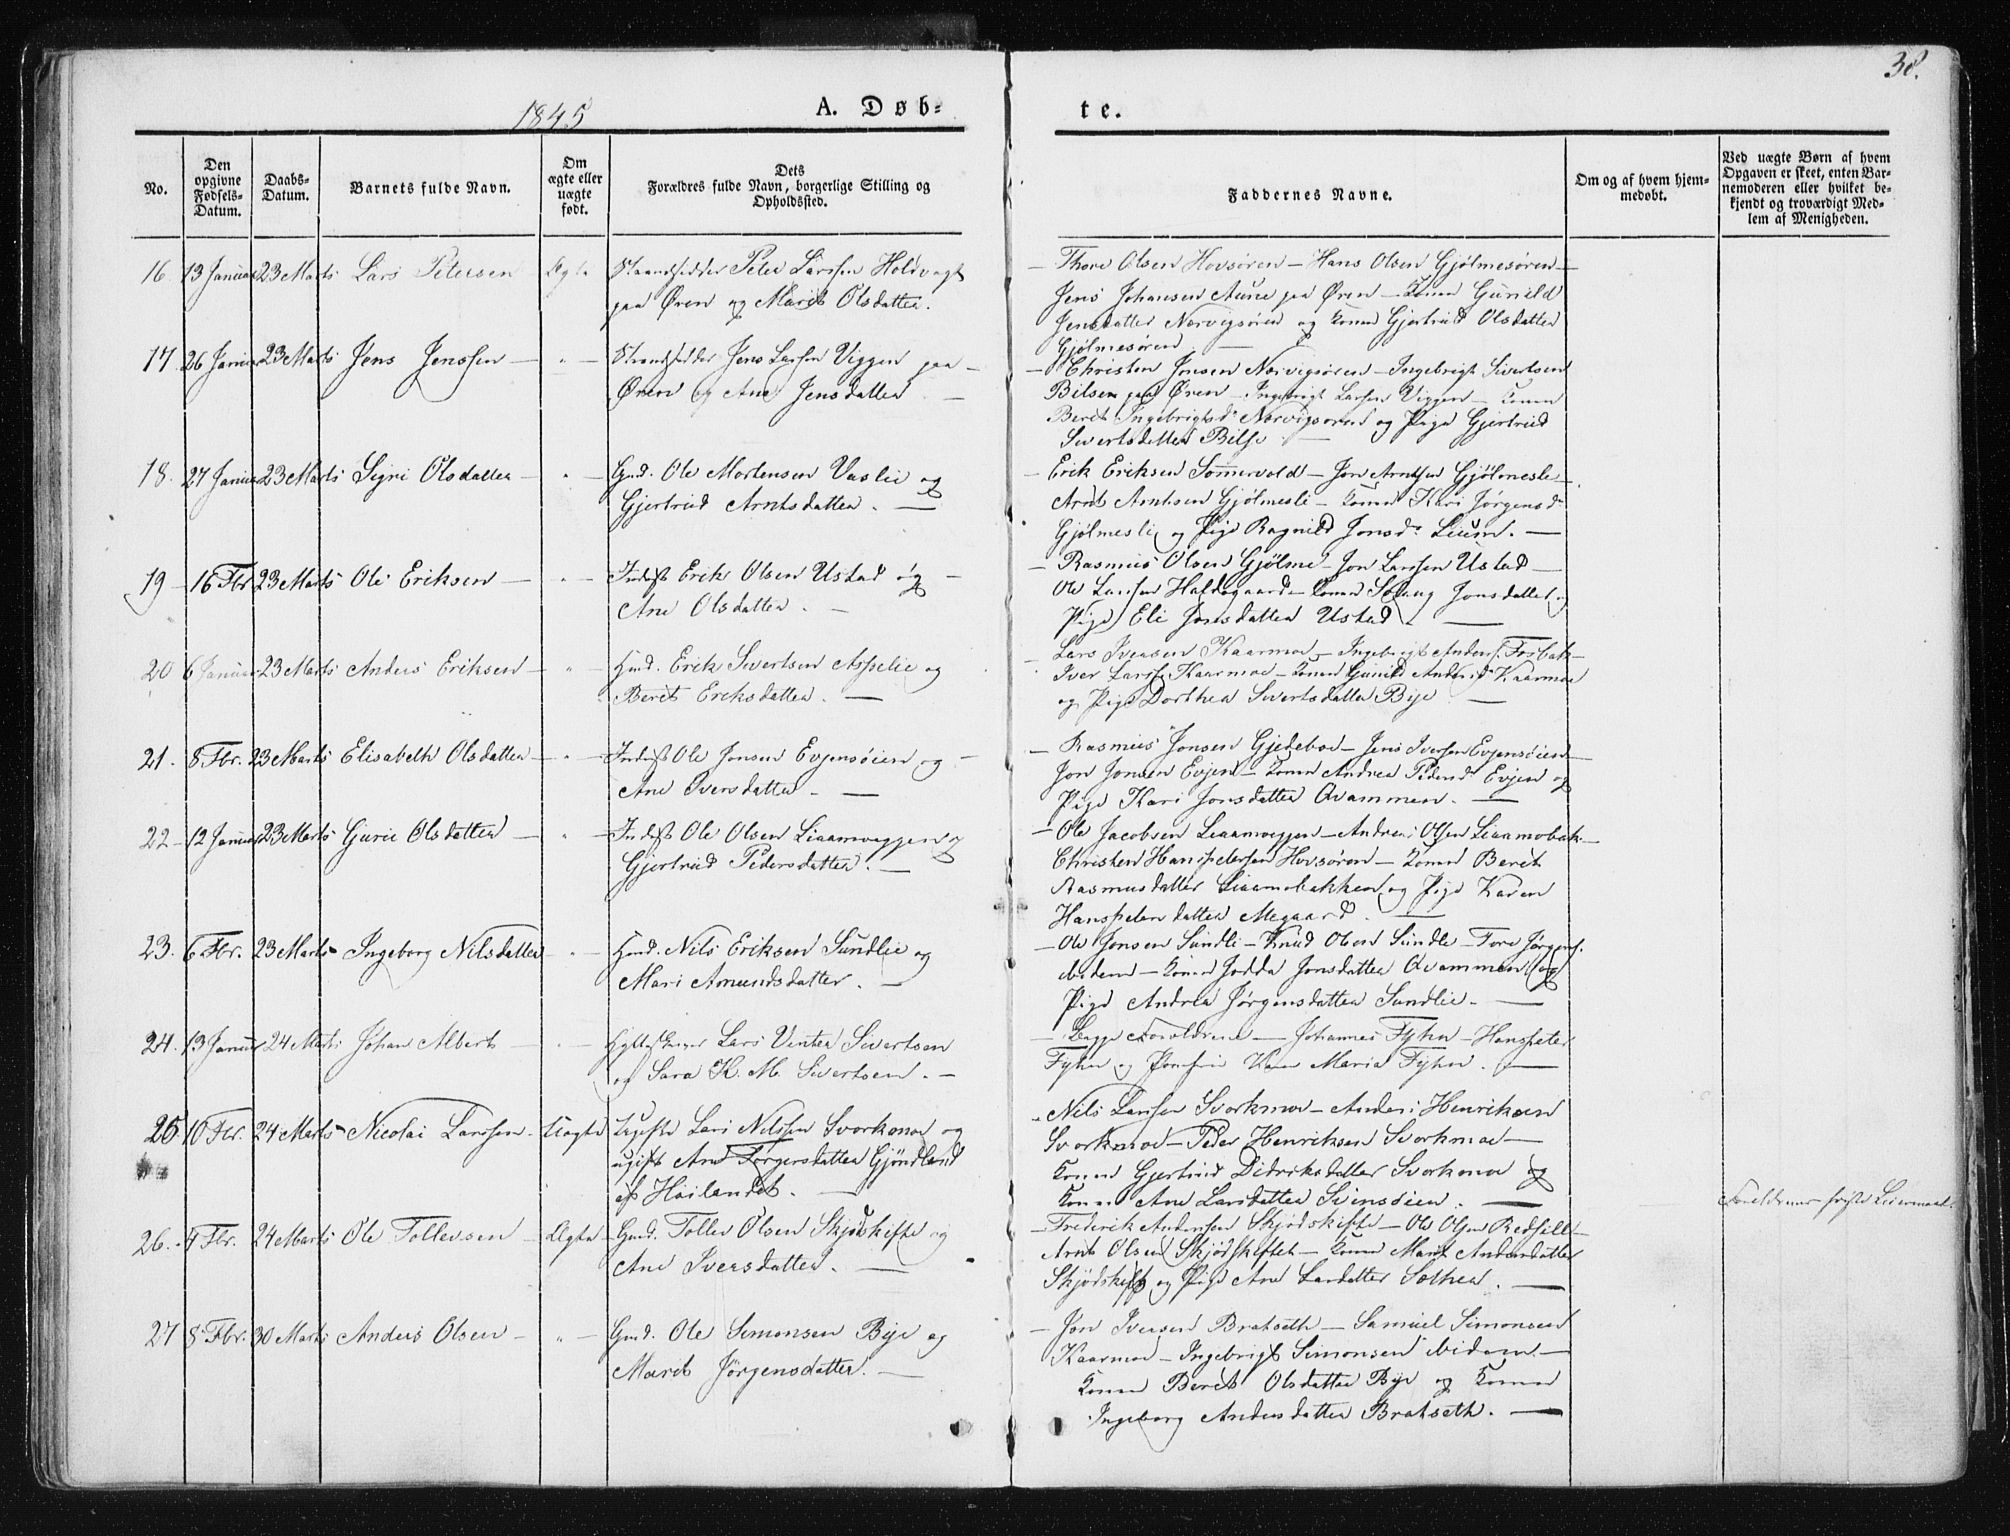 38.
1845
A. Døb-
te.
No.
Den opgivne Fødsels-Datum.
Daabs-Datum.
Barnets fulde Navn.
Om ægte eller uægte født.
Dets Forældres fulde Navn, borgerlige Stilling og Opholdssted.
Faddernes Navne.
Om og af hvem hjem-medøbt.
Ved uægte Børn af hvem Opgaven er skeet, enten Bar-nemoderen eller hvilket be-kjendt og troværdigt Med-lem af Menigheden.
16. 13 Januar 23 Marts Lars Petersen Ægte Strandsidder Peter Larssen Holdvagt
paa Øren og Marit Olsdatter.
— Thore Olsen Hovsøren — Hans Olsen Gjølmesøren —
Jens Johansen Aune paa Øren — Konen Gunild
Jensdatter Norvigsøren og Konen Gjertrud Olsdatter
Gjølmesøren. —
17. 26 Januar 23 Marts Jens Jenssen — " — Strandsidder Jens Larsen Viggen paa —
Øren og Ane Jensdatter. —
— Christen Jonsen Norvigsøren — Ingebrigt Sivertsen
Bilsen paa Øren — Ingebrigt Larsen Viggen — Konen
Berit Ingebrigtsd. Norvigsøren og Pige Gjertrud
Sivertsdatter Bilse —
18. 27 Januar 23 Marts Signi Olsdatter — " — Gmd. Ole Mortensen Vaslie og
Gjertrud Arntsdatter. —
— Erik Eriksen Sommervold — Jon Arntsen Gjølmesli —
Arnt Arntsen Gjølmesli — Konen Kari Jørgensd.
Gjølmesli og Pige Ragnild Jonsd. Lium. —
19 — 16 Fbr 23 Marts Ole Eriksen — " — Inderst Erik Olsen Ustad og —
Ane Olsdatter. —
— Rasmus Olsen Gjølme — Jon Larssen Ustad —
Ole Larsen Haldogaard — Konen Solaug Jonsdatter og
Pige Eli Jonsdatter Ustad. —
20 6 Januar 23 Marts Anders Eriksen — " — Hmd. Erik Sivertsen Asplie og
Berit Eriksdatter. —
— Lars Iversen Kaarmoe — Ingebrigt Anders. Fosbak —
Iver Larss. Kaarmoe — Konen Gunild Andersd. Kaarmoe
og Pige Dorthea Sivertsdatter Bye —
21. 8 Fbr. 23 Marts Elisabeth Olsdatter — " — Inderst Ole Jonsen Evjensøien og —
Ane Iversdatter — —
— Rasmus Jonsen Gjedeboe — Jens Iversen Evjensøien —
Jon Jonsen Evjen — Konen Andrea Pedersd. Evjen og
Pige Kari Jonsdatter Qvammen. —
22 — 12 Januar 23 Marts Gurie Olsdatter — " — Inderst Ole Olsen Liaamveggen og
Gjertrud Pedersdatter. —
— Ole Jacobsen Liaamveggen — Andreas Olsen Liaamobak —
Christen Hanspetersen Hovsøren — Konen Berit
Rasmusdatter Liaamobakken og Pige Karen
Hanspetersdatter Megaard. —
23. 6 Fbr. 23 Marts — Ingeborg Nilsdatter — " — Hmd. Nils Eriksen Sundlie og
Mari Amundsdatter. —
— Ole Jonsen Sundli — Knud Olsen Sundli — Tore Jørgens.
ibidem — Konen Jodda Jonsdatter Qvammen og
Pige Andrea Jørgensdatter Sundlie. —
24. 13 Januar 24 Marts Johan Albert — " — Lars Vinter Sivertsen
og Sara K. M. Sivertsen. —
— Begge Forældrene — Johannes Fyhn — Hanspeter
Fyhn og Jomfru Karen Maria Fyhn. —
25 10 Fbr. 24 Marts — Nicolai Larssen — Uægte Ugifte Lars Nilssen Svorkmoe og
ugift Ane Jørgensdatter Gjøndland
af Høilandet. —
— Nils Larssen Svorkmoe — Anders Henriksen
Svorkmoe — Peder Henriksen Svorkmoe —
Konen Gjertrud Didriksdatter Svorkmoe og
Konen Ane Larsdatter Svinsøien. —
Forældrene første Leiermaal.
26. 4 Fbr. 24 Marts Ole Tollevsen — Ægte Gmd. Tollev Olsen Skjødskifte og
Ane Iversdatter. —
— Frederik Andersen Skjødskifte — Ole Olsen Rødfjell —
Arnt Olsen Skjødskiftet — Konen Marit Andersdatter
Skjødskift og Pige Ane Larsdatter Solhen. —
27 8 Fbr. 30 Marts Anders Olsen — " — Gmd. Ole Simonsen Bye og
Marit Jørgensdatter. —
— Jon Iversen Bratseth — Samuel Simonsen
Kaarmoe — Ingebrigt Simonsen ibidem —
Konen Berit Olsdatter Bye og Konen
Ingeborg Andersdatter Bratseth. —